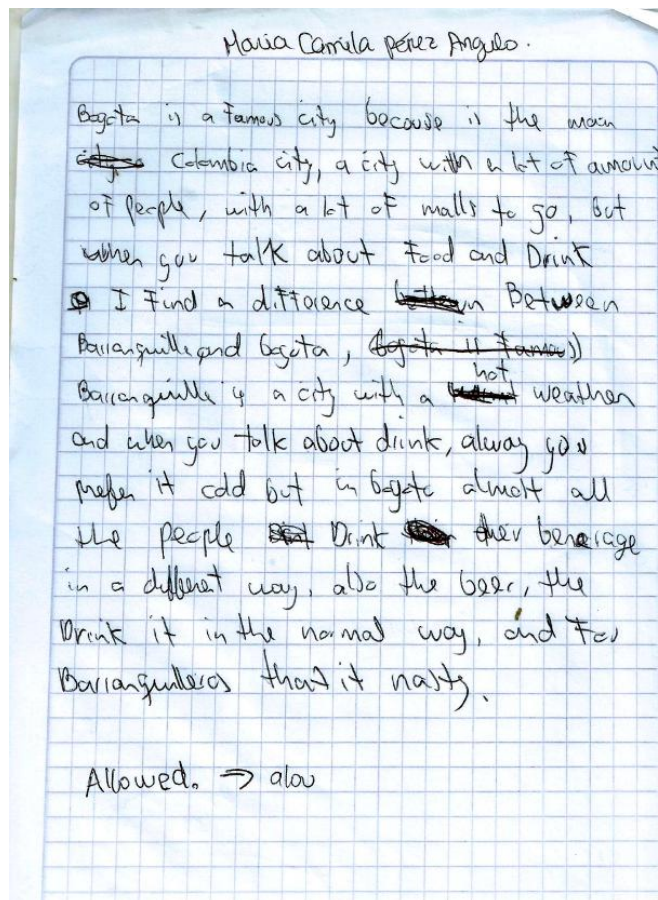 Maria Camila pérez Angulo.
Bogota is a Famous city because is the main
Colombia city, a city with a lot of amount
of people, with a lot of malls to go, but
when you talk about Food and Drink
I Find a difference Between
Barranquilla and bogota, (bogota is famous)
hot
Barranquilla is a city with a weather
and when you talk about drink, alway you
prefer it cold but in bogota almost all
the people Drink their beverage
in a different way, also the beer, the
Drink it in the normal way, and For
Barranquilleros that it nasty.
Allowed. → alou